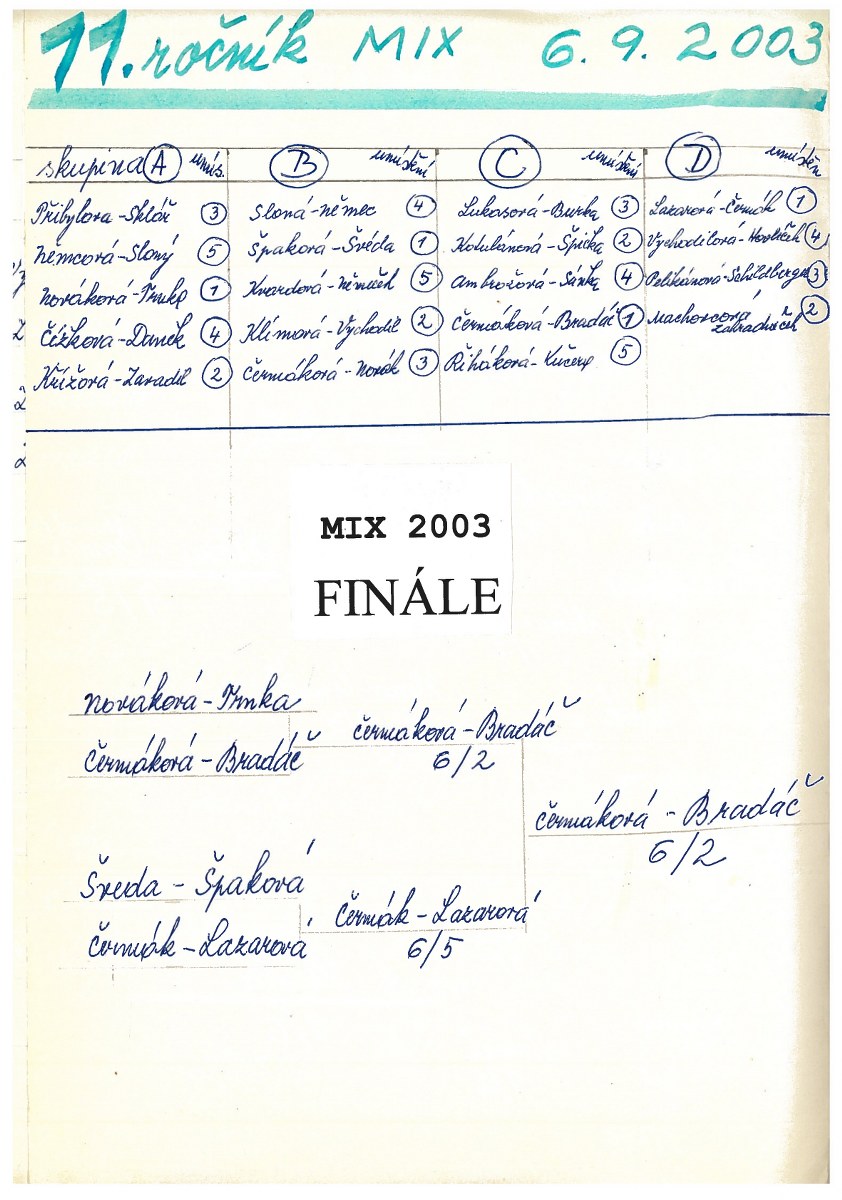 11. ročník MIX 6. 9. 2003
skupina A umís. B umístění C umístění D umístěn
Přibylova-Sklář 3 Sloná-Němec 4 Lukasová-Burka 3 Lazarová-Čermák 1
Němcová-Sloný 5 Špaková-Švéda 1 Kolulánová-Špička 2 Vychodilová-Havlíček 4
Nováková-Trnka 1 Kvardová-Němeček 5 Ambrožová-Sánka 4 Pelikánová-Schildberger 3
Čížková-Daněk 4 Klímová-Vychodil 2 Čermáková-Bradáč 1 Machorcová zahradníček 2
Křížová-Zavadil 2 Čermáková-Novák 3 Řiháková-Kučera 5
MIX 2003
FINÁLE
Nováková-Trnka
Čermáková-Bradáč
6/2
Čermáková-Bradáč
Čermáková-Bradáč
6/2
Šveda-Špaková
Čermák-Lazarová
6/5
Čermák-Lazarová